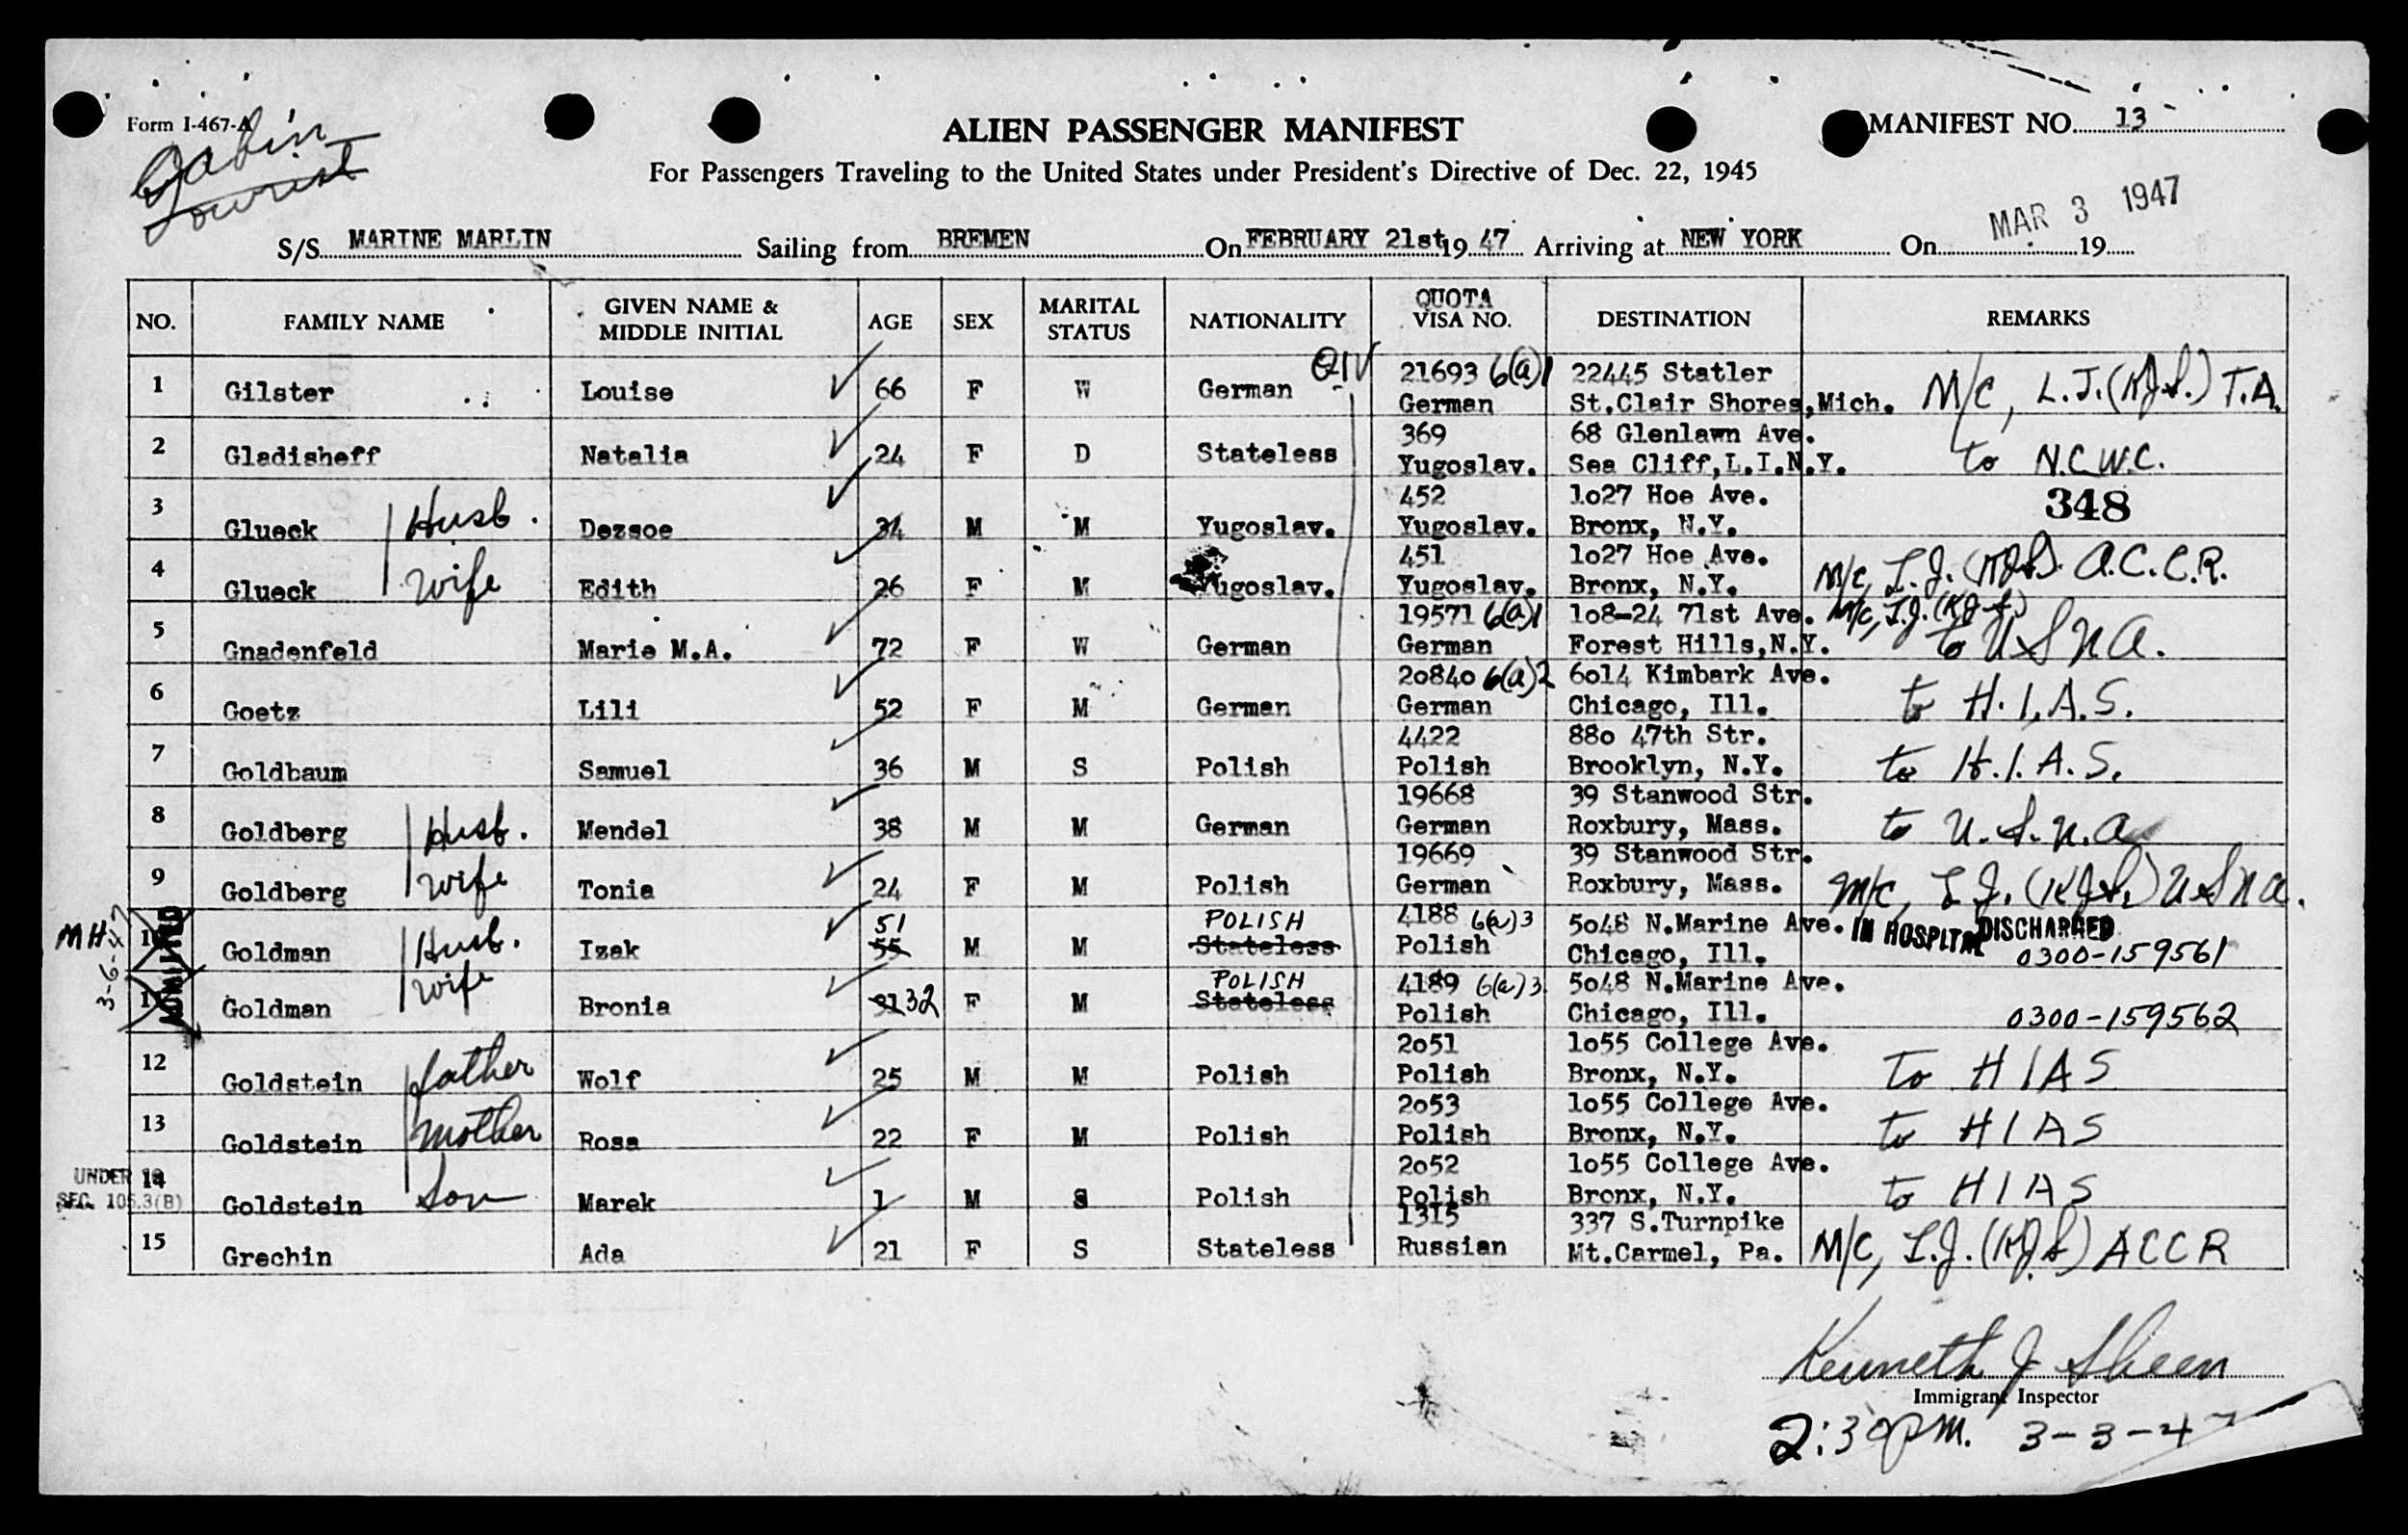 Form I-467-A
Cabin
Tourist
ALIEN PASSENGER MANIFEST
MANIFEST NO. 13
For Passengers Traveling to the United States under President's Directive of Dec. 22, 1945
MAR 3 1947
S/S MARINE MARLIN Sailing from BREMEN On FEBRUARY 21st 19 47 Arriving at NEW YORK On 19
NO. FAMILY NAME GIVEN NAME & MIDDLE INITIAL AGE SEX MARITAL STATUS NATIONALITY QUOTA VISA NO. DESTINATION REMARKS
QIV
1 Gilster Louise 66 F W German 21693 6(a)1 German 22445 Statler St.Clair Shores,Mich. M/C, L.J. (KJS.) T.A.
2 Gladisheff Natalia 24 F D Stateless 369 Yugoslav. 68 Glenlawn Ave. Sea Cliff,L.I.N.Y. to N.C.W.C.
3 Glueck Husb. Dezsoe 34 M M Yugoslav. 452 Yugoslav. 1o27 Hoe Ave. Bronx, N.Y. 348
4 Glueck Wife Edith 26 F M Yugoslav. 451 Yugoslav. 1o27 Hoe Ave. Bronx, N.Y. M/C, L.J. (KJS). A.C.C.R.
5 Gnadenfeld Marie M.A. 72 F W German 19571 6(a)1 German 1o8-24 71st Ave. Forest Hills,N.Y. M/C, L.J. (KJS) to USNA.
6 Goetz Lili 52 F M German 2o84o 6(a)2 German 6o14 Kimbark Ave. Chicago, Ill. to H.I.A.S.
7 Goldbaum Samuel 36 M S Polish 4422 Polish 88o 47th Str. Brooklyn, N.Y. to H.I.A.S.
8 Goldberg Husb. Mendel 38 M M German 19668 German 39 Stanwood Str. Roxbury, Mass. to U.S.N.A
9 Goldberg Wife Tonia 24 F M Polish 19669 German 39 Stanwood Str. Roxbury, Mass. M/C, L.J. (KJS.) USNA.
MH 3-6-47 ADMITTED
10 Goldman Husb. Izak 51 55 M M POLISH Stateless 4188 6(a)3 Polish 5o48 N.Marine Ave. Chicago, Ill. IN HOSPITAL DISCHARGED 0300-159561
11 Goldman Wife Bronia 32 F M POLISH Stateless 4189 6(a)3 Polish 5o48 N.Marine Ave. Chicago, Ill. 0300-159562
12 Goldstein father Wolf 25 M M Polish 2o51 Polish 1o55 College Ave. Bronx, N.Y. to HIAS
13 Goldstein mother Rosa 22 F M Polish 2o53 Polish 1o55 College Ave. Bronx, N.Y. to HIAS
UNDER SEC. 105.3(B)
14 Goldstein Son Marek 1 M S Polish 2o52 Polish 1o55 College Ave. Bronx, N.Y. to HIAS
15 Grechin Ada 21 F S Stateless 1315 Russian 337 S.Turnpike Mt.Carmel, Pa. M/C, L.J. (KJS) ACCR
Kenneth J Sheen
Immigrant Inspector
2:30 PM. 3-3-47